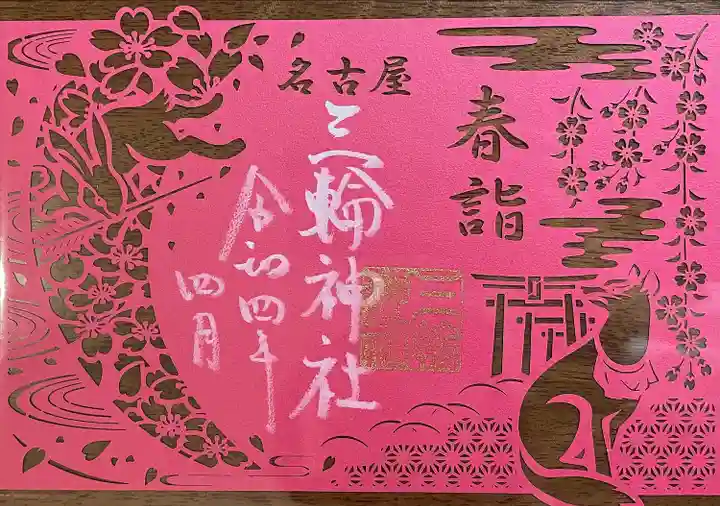 春詣
名古屋
三輪神社
令和四年
四月